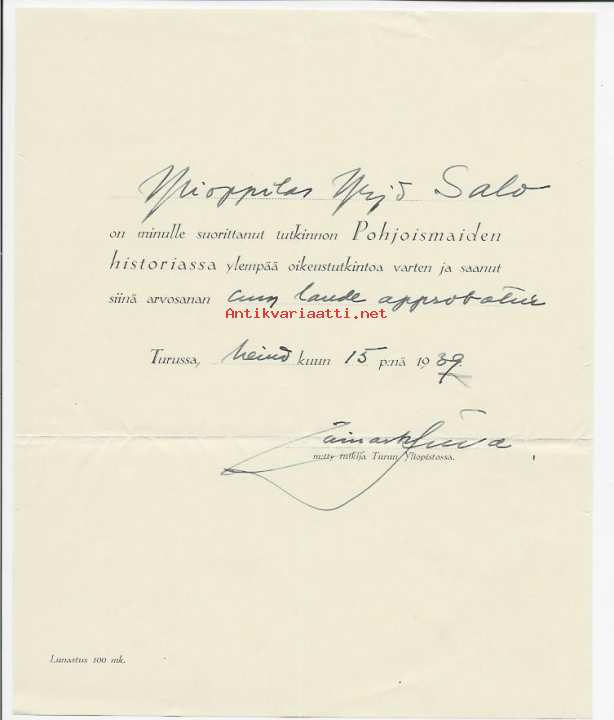 Ylioppilas Yrjö Salo
on minulle suorittanut tutkinnon Pohjoismaiden
historiassa ylempää oikeustutkintoa varten ja saanut
siinä arvosanan cum laude approbatur
Antikvariaatti.net
Turussa, heinä kuun 15 p:nä 1939.
Einar Juva
m:tty tutkija Turun Yliopistossa.
Lunastus 100 mk.